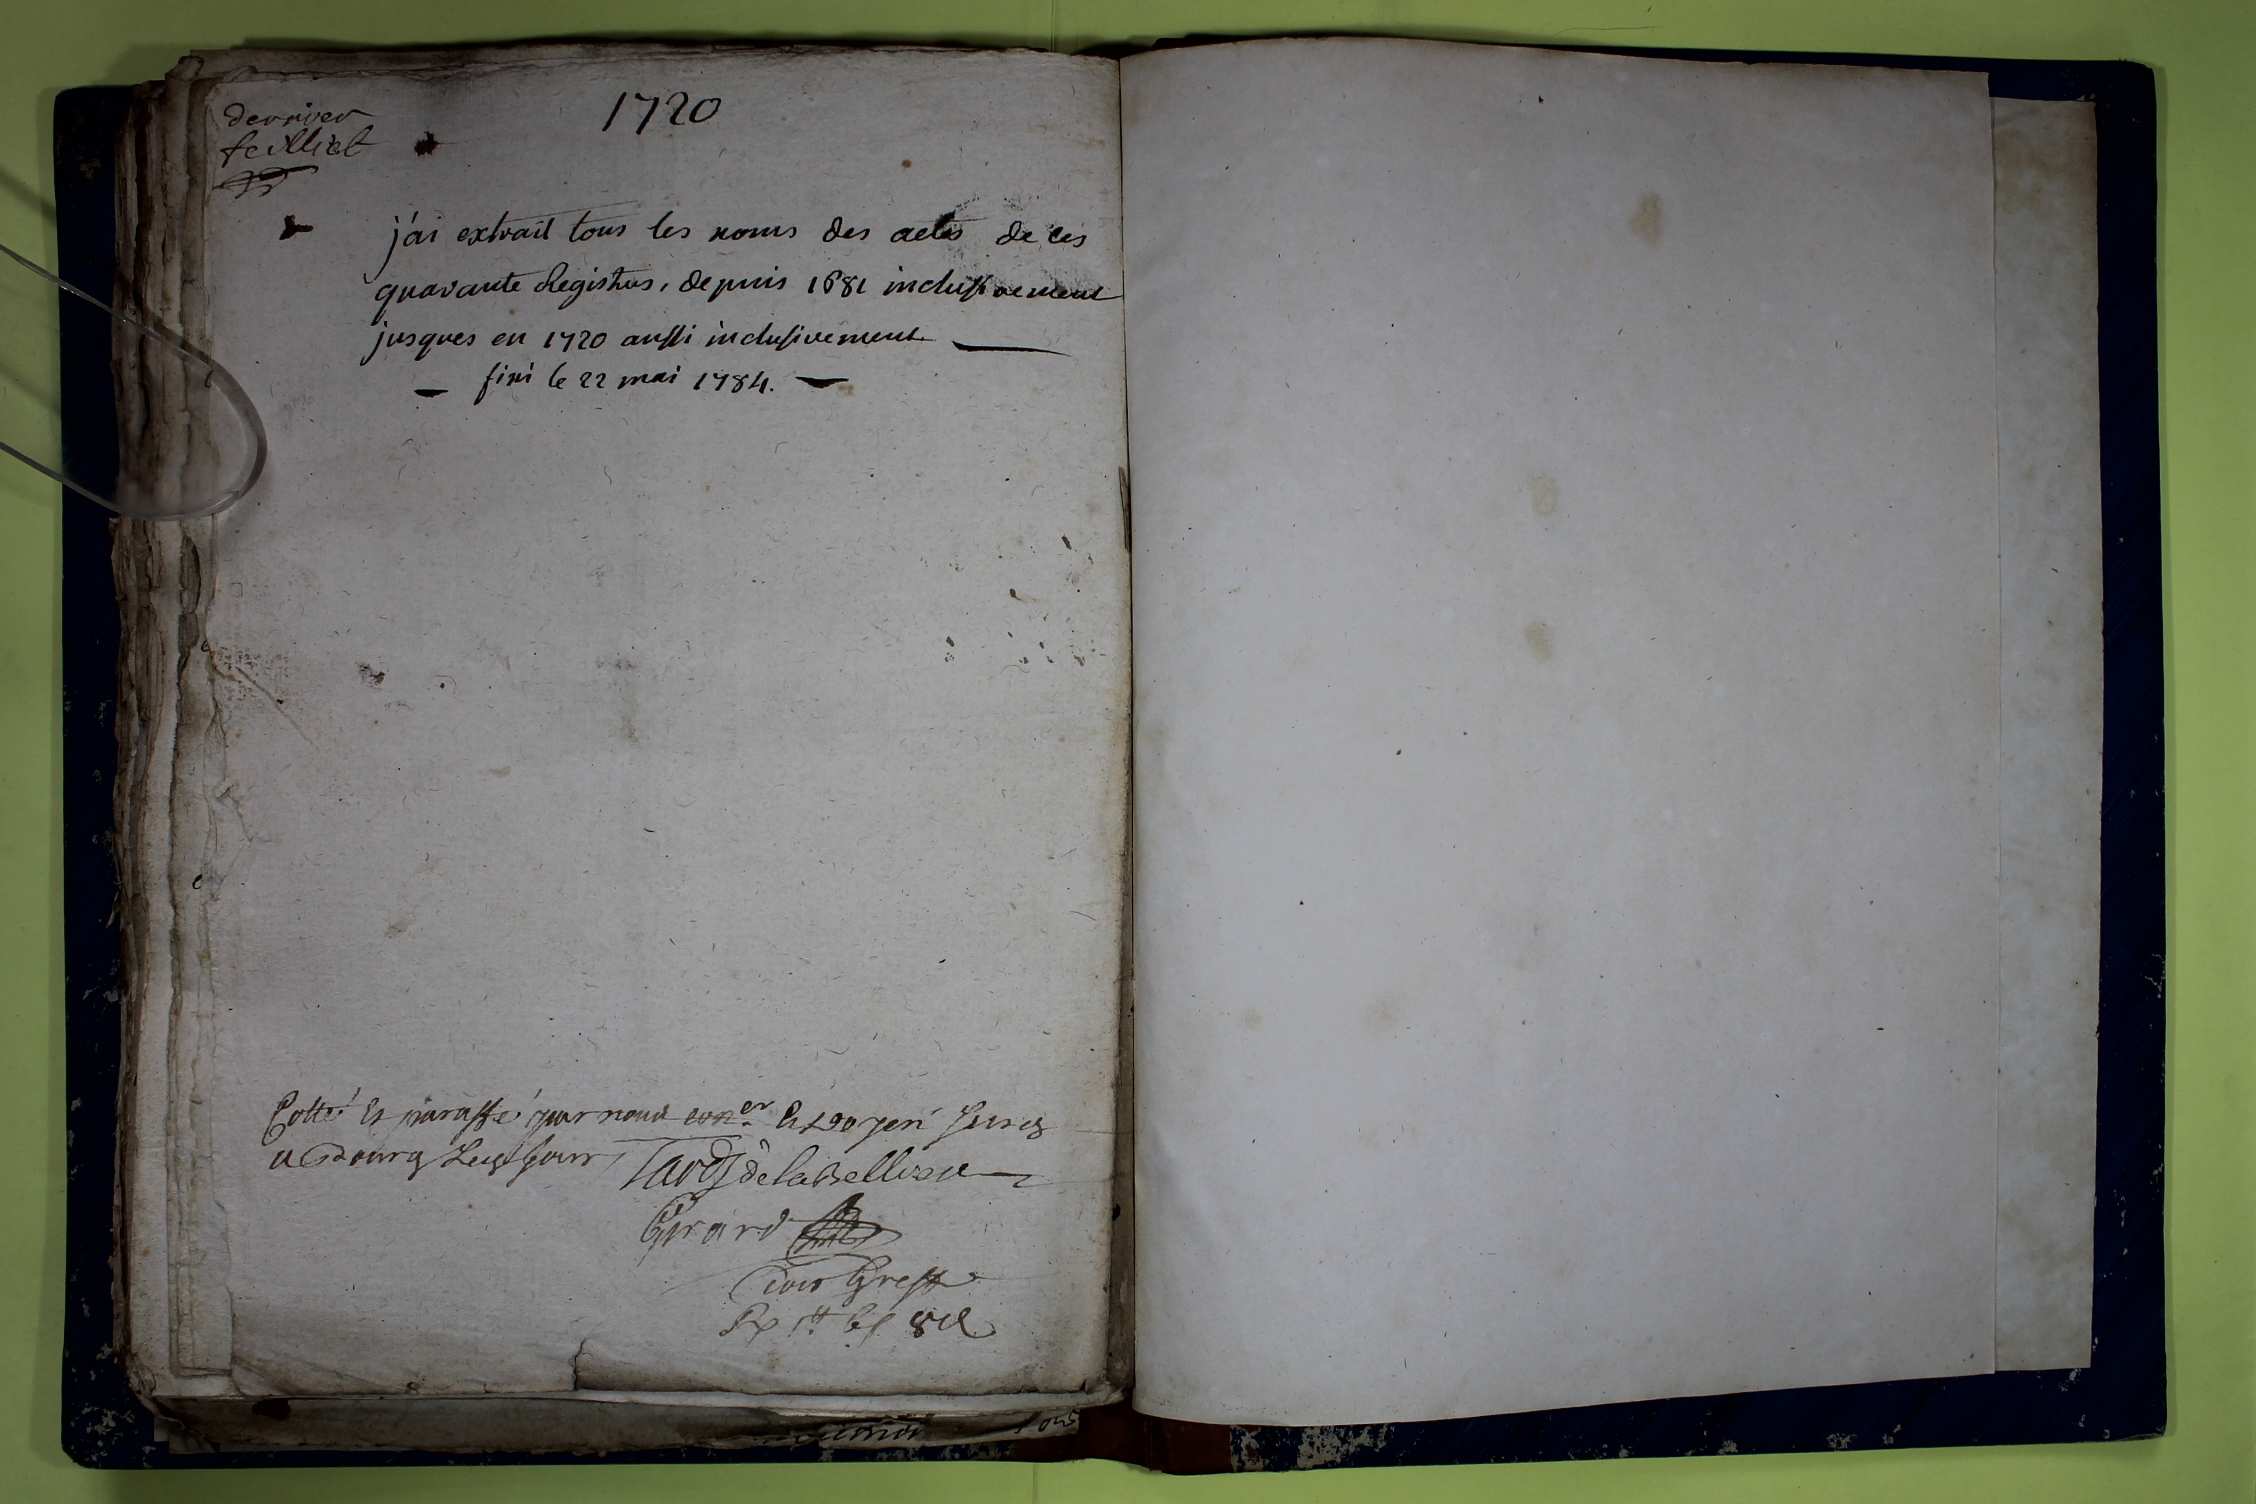 1720
dernier
feilliet
j'ai extrait tous les noms des actes de ces
quarante Registres, depuis 1681 inclusivement
jusques en 1720 aussi inclusivement
fini le 22 mai 1784.
Cotté et paraffé par nous con.er et doyen
a Bourg de la Bellisse
Girard
Greff